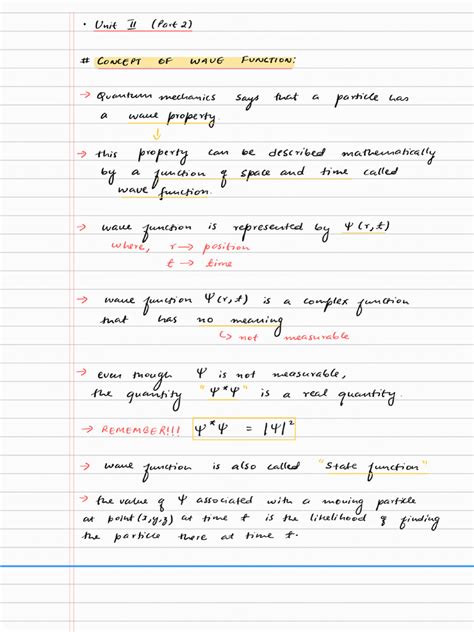 • Unit II (Part 2)
# CONCEPT OF WAVE FUNCTION:
→ Quantum mechanics says that a particle has
a wave property.
↓
→ this property can be described mathematically
by a function of space and time called
wave function.
→ wave function is represented by Ψ(r,t)
where, r → position
t → time
→ wave function Ψ(r,t) is a complex function
that has no meaning
↳ not measurable
→ Even though Ψ is not measurable,
the quantity "Ψ*Ψ" is a real quantity.
→ REMEMBER!!! Ψ*Ψ = |Ψ|²
→ wave function is also called "State function"
→ the value of Ψ associated with a moving particle
at point (x,y,z) at time t is the likelihood of finding
the particle there at time t.